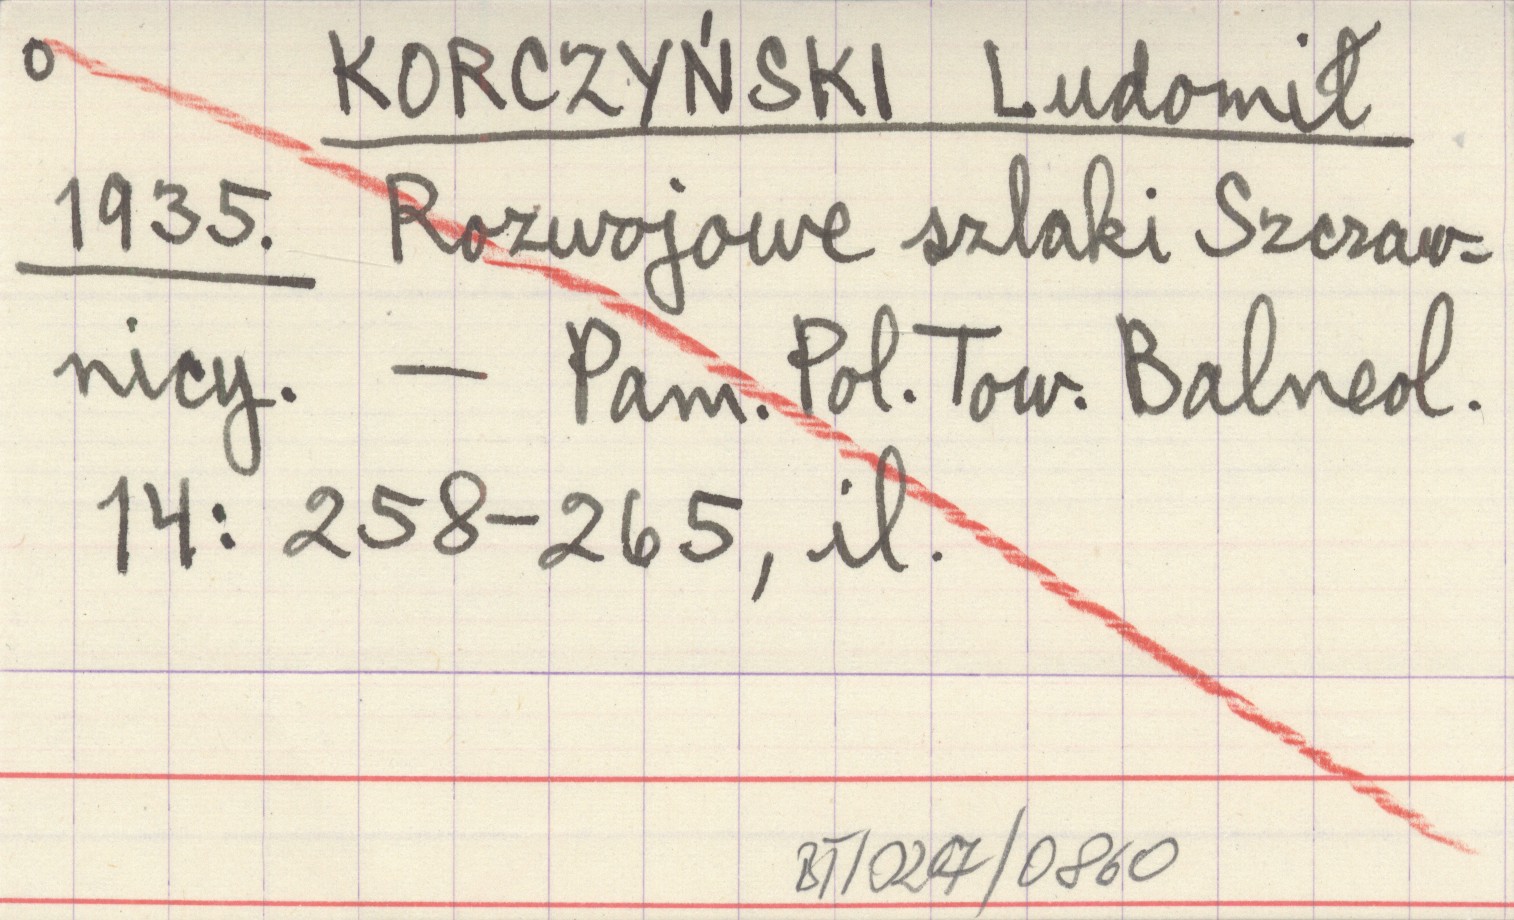 o KORCZYŃSKI Ludomił
1935. Rozwojowe szlaki Szczaw-
nicy. — Pam. Pol. Tow. Balneol.
14: 258-265, il.
BT/0247/0860